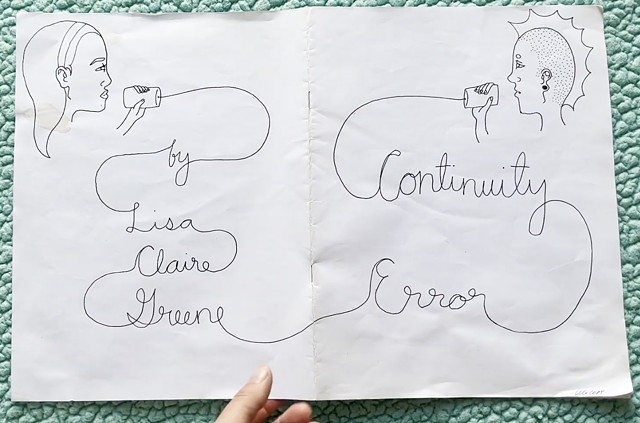 Continuity
Error
by
Lisa
Claire
Greene